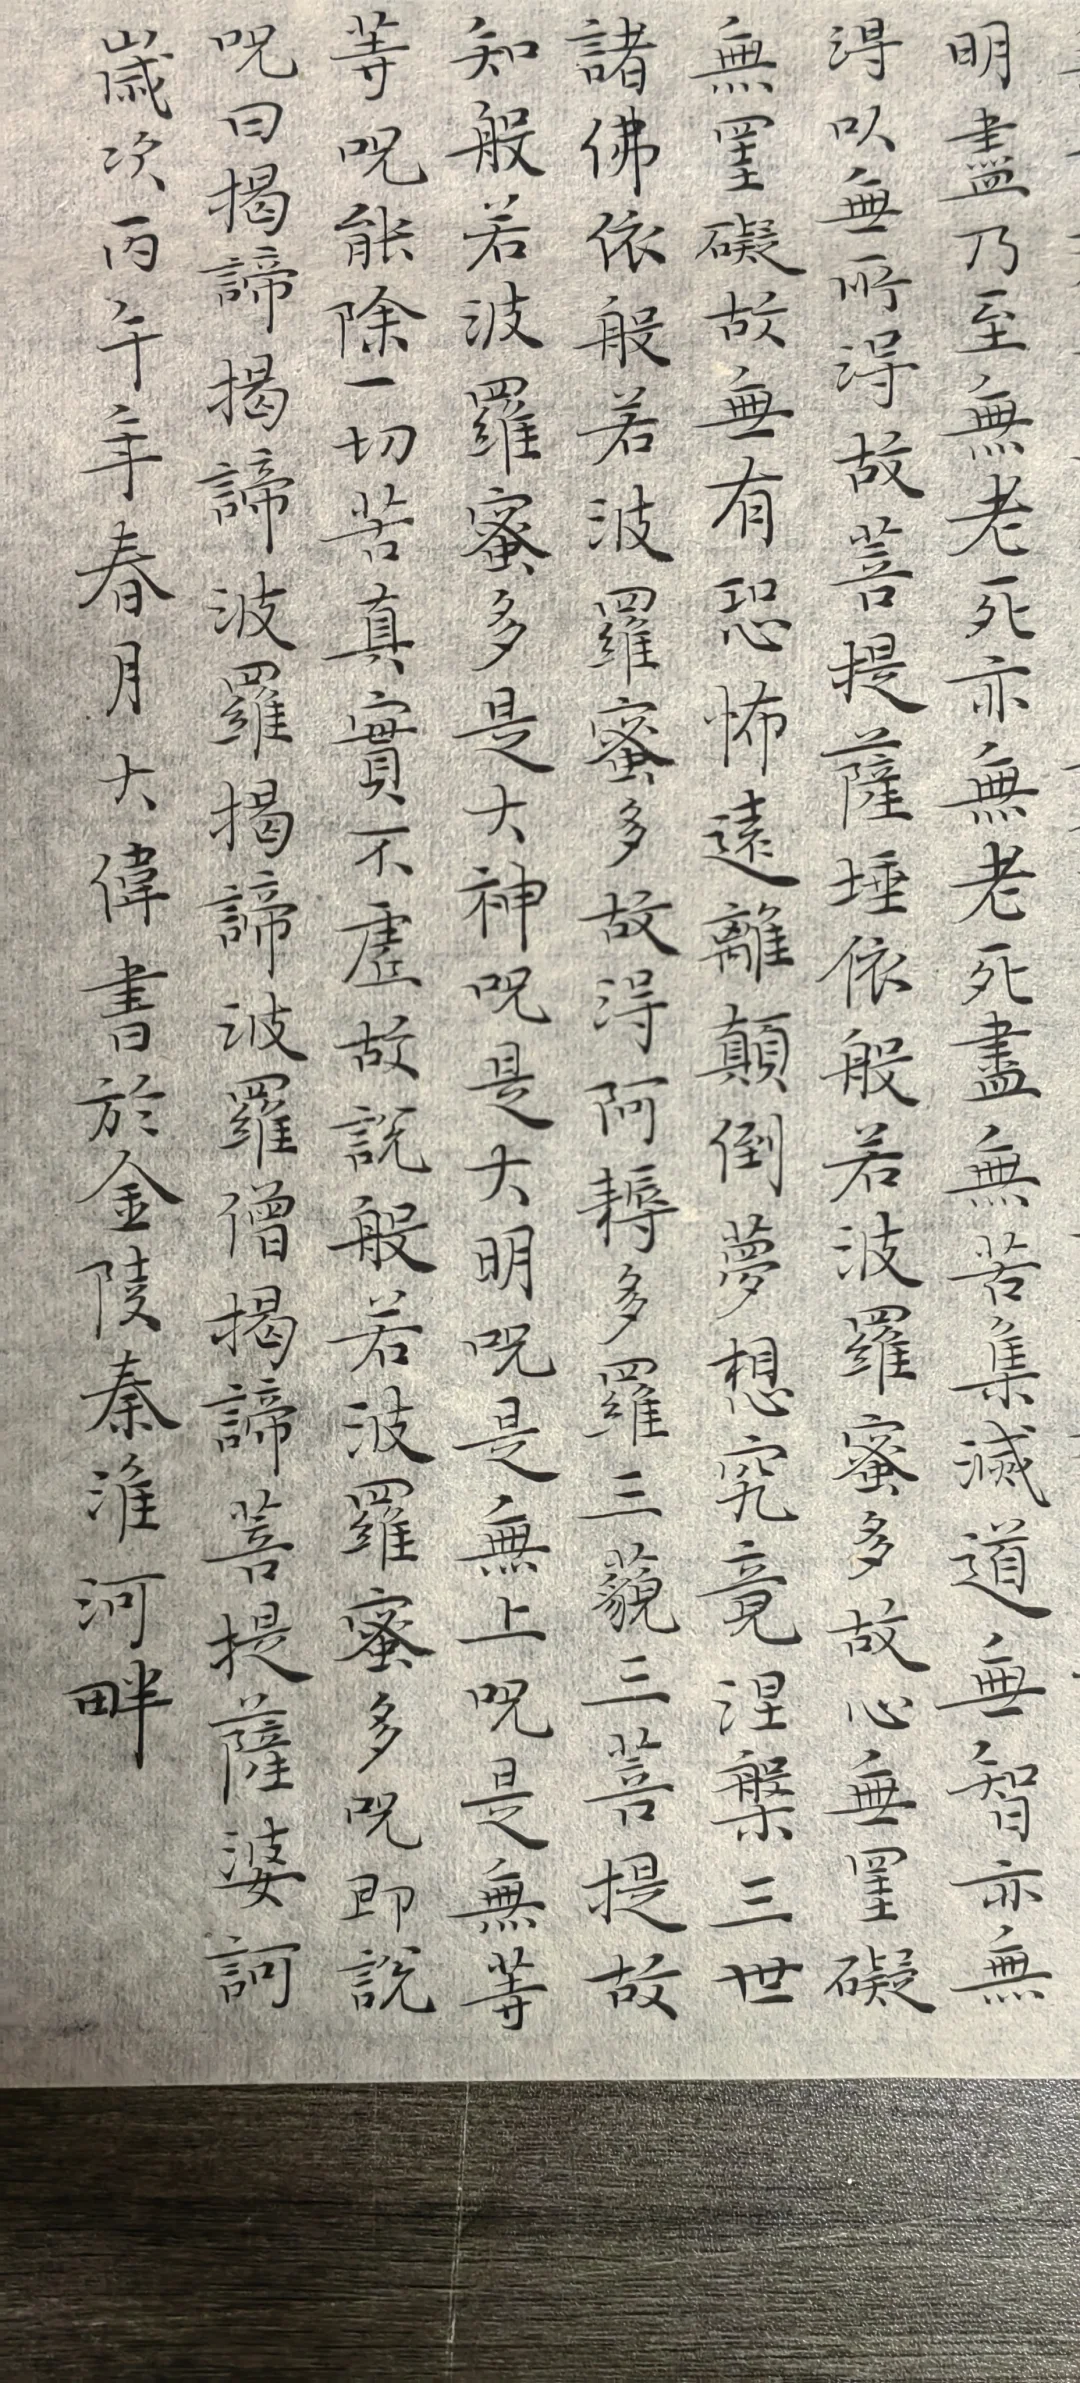 明盡乃至無老死亦無老死盡無苦集滅道無智亦無
得以無所得故菩提薩埵依般若波羅蜜多故心無罣礙
無罣礙故無有恐怖遠離顛倒夢想究竟涅槃三世
諸佛依般若波羅蜜多故得阿耨多羅三藐三菩提故
知般若波羅蜜多是大神呪是大明呪是無上呪是無等
等呪能除一切苦真實不虛故說般若波羅蜜多呪即說
呪曰揭諦揭諦波羅揭諦波羅僧揭諦菩提薩婆訶
歲次丙午年春月大偉書於金陵秦淮河畔